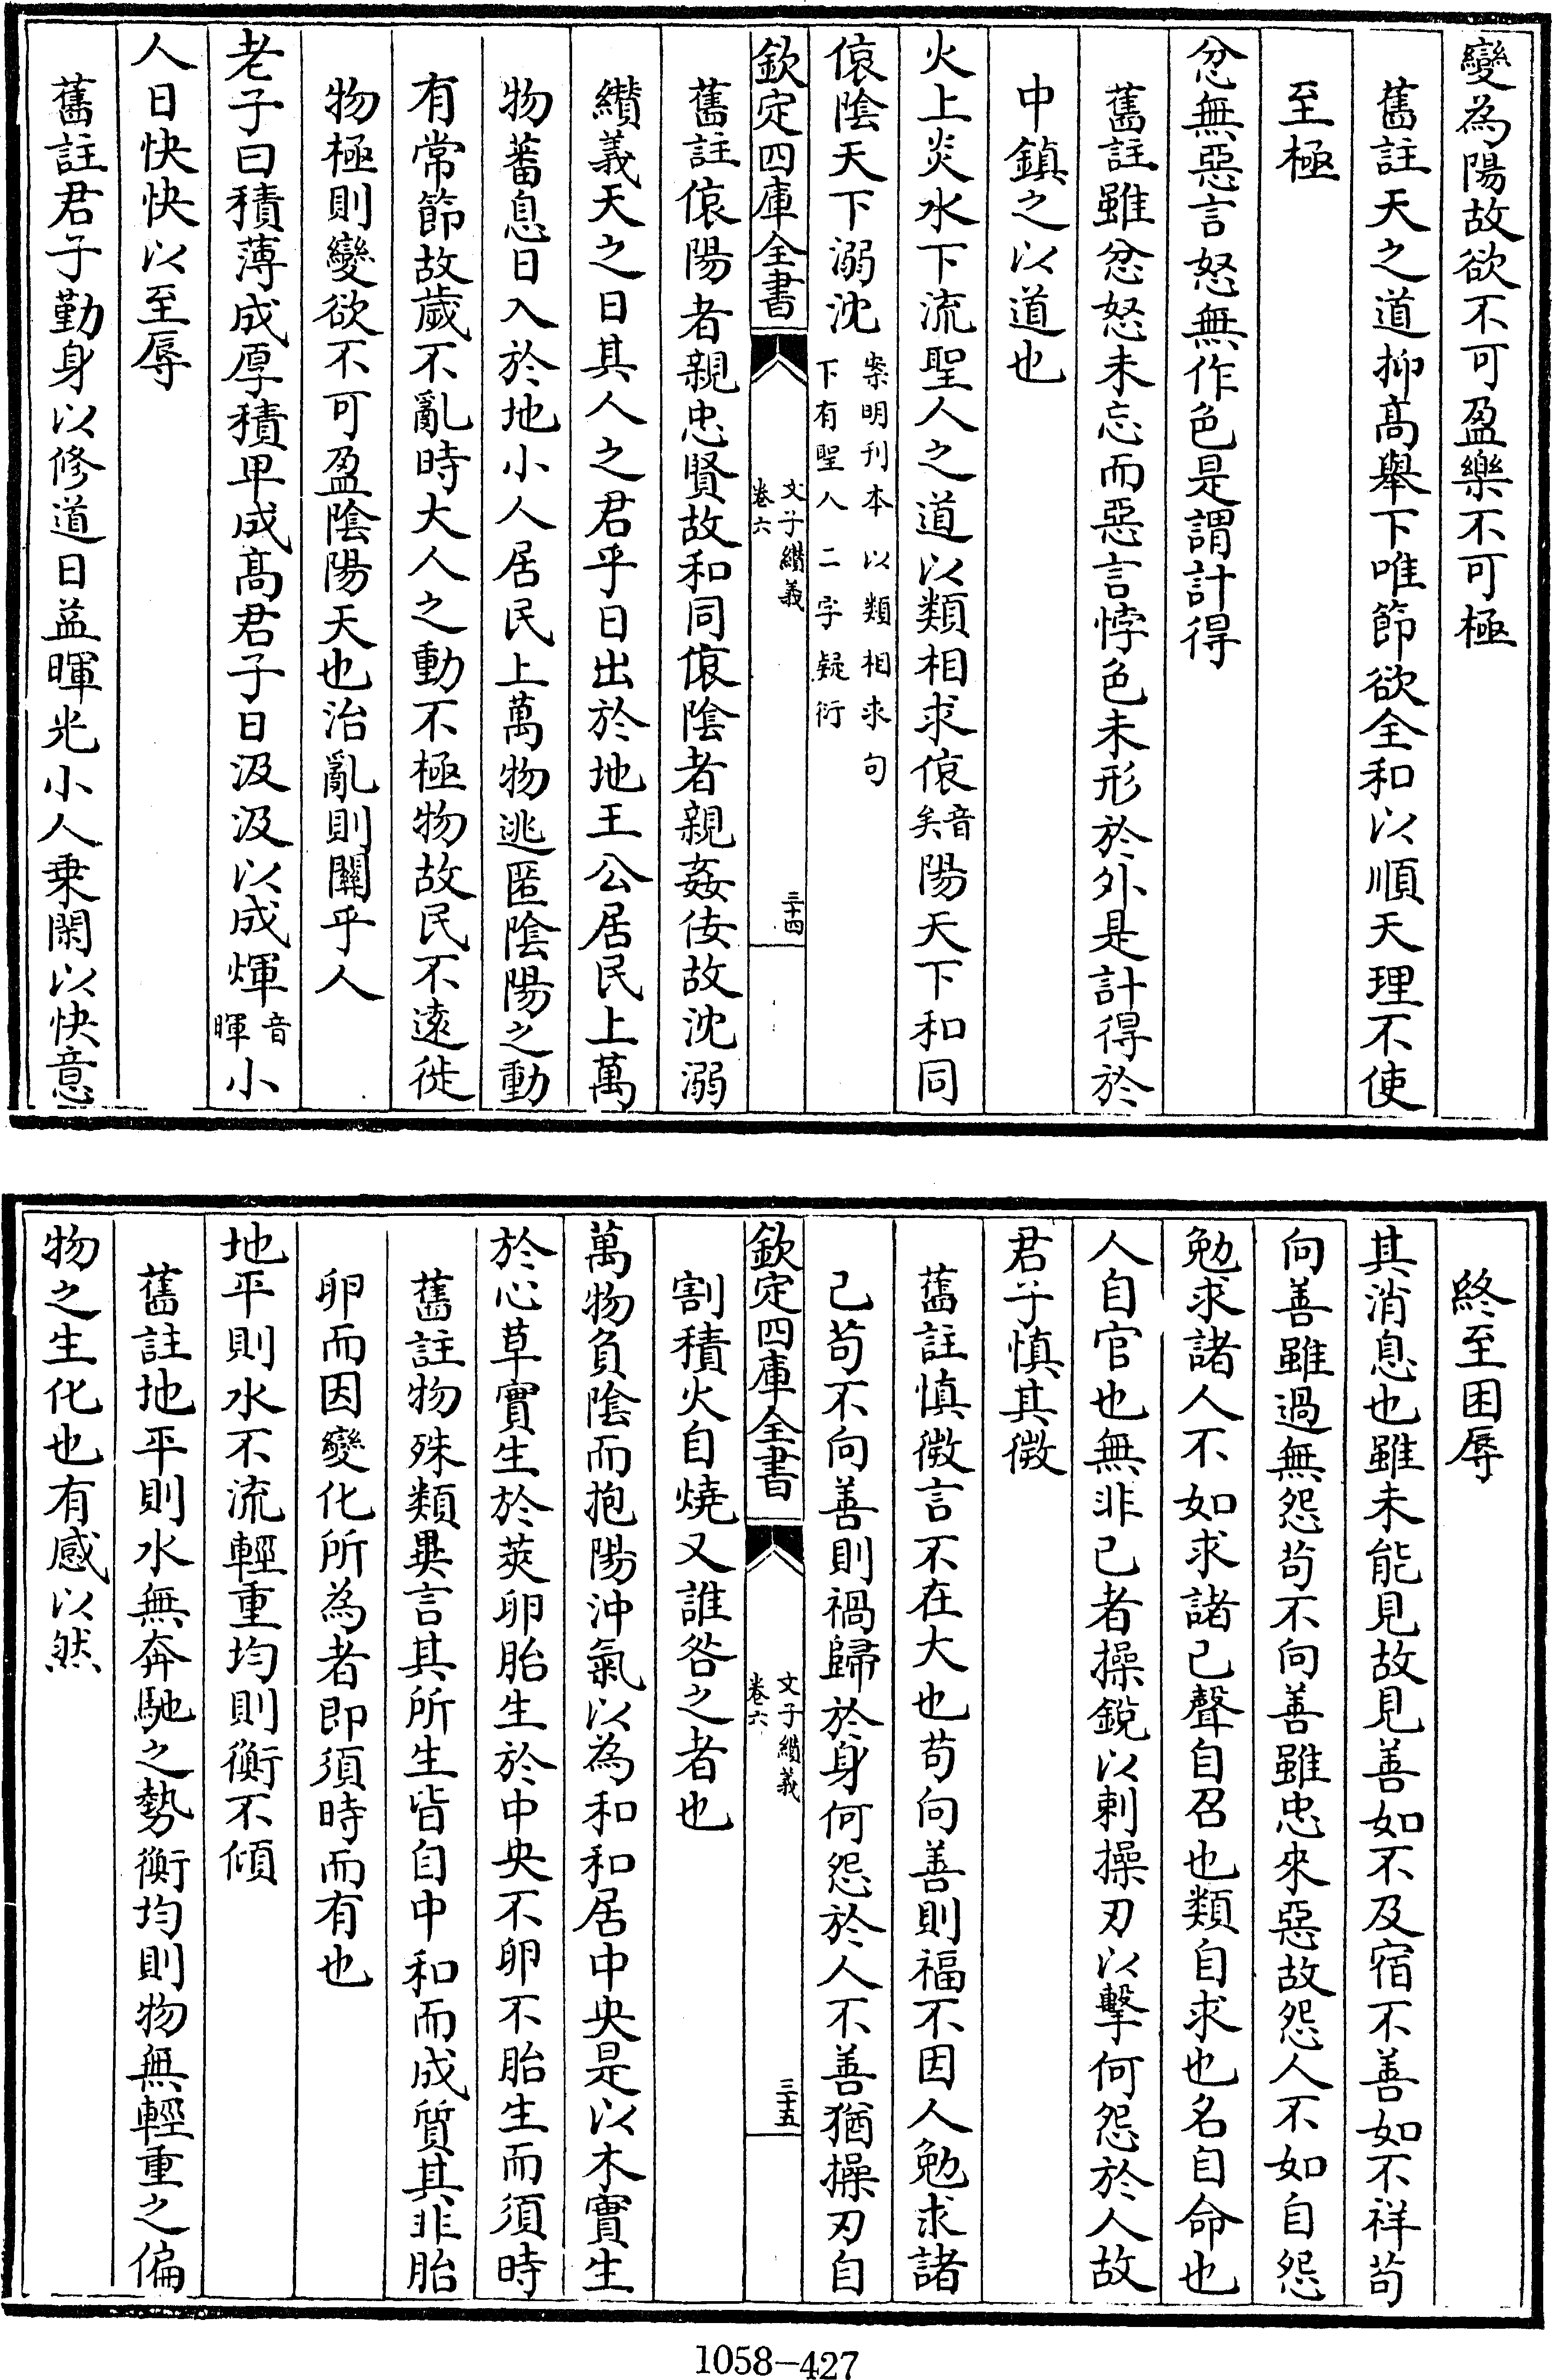 變為陽故欲不可盈樂不可極
舊註天之道抑髙舉下唯節欲全和以順天理不使
至極
忿無惡言怒無作色是謂計得
舊註雖忿怒未忘而惡言悖色未形於外是計得於
中鎮之以道也
火上炎水下流聖人之道以類相求偯音矣陽天下和同
偯陰天下溺沈案明刊本以類相求句下有聖人二字疑衍
欽定四庫全書
文子纉義
卷六
三十四
舊註偯陽者親忠賢故和同偯陰者親姦佞故沈溺
纉義天之日其人之君乎日出於地王公居民上萬
物蕃息日入於地小人居民上萬物逃匿陰陽之動
有常節故歲不亂時大人之動不極物故民不遠徙
物極則變欲不可盈陰陽天也治亂則關乎人
老子曰積薄成厚積卑成髙君子日汲汲以成煇音暉小
人日快快以至辱
舊註君子勤身以修道日益暉光小人乗閑以快意
終至困辱
其消息也雖未能見故見善如不及宿不善如不祥苟
向善雖過無怨苟不向善雖忠來惡故怨人不如自怨
勉求諸人不如求諸己聲自召也類自求也名自命也
人自官也無非己者操鋭以刺操刃以擊何怨於人故
君子慎其微
舊註慎微言不在大也苟向善則福不因人勉求諸
己苟不向善則禍歸於身何怨於人不善猶操刃自
欽定四庫全書
文子纉義
卷六
三十五
割積火自燒又誰咎之者也
萬物負陰而抱陽沖氣以為和和居中央是以木實生
於心草實生於莢卵胎生於中央不卵不胎生而須時
舊註物殊類異言其所生皆自中和而成質其非胎
卵而因變化所為者即須時而有也
地平則水不流輕重均則衡不傾
舊註地平則水無奔馳之勢衡均則物無輕重之偏
物之生化也有感以然
1058-427